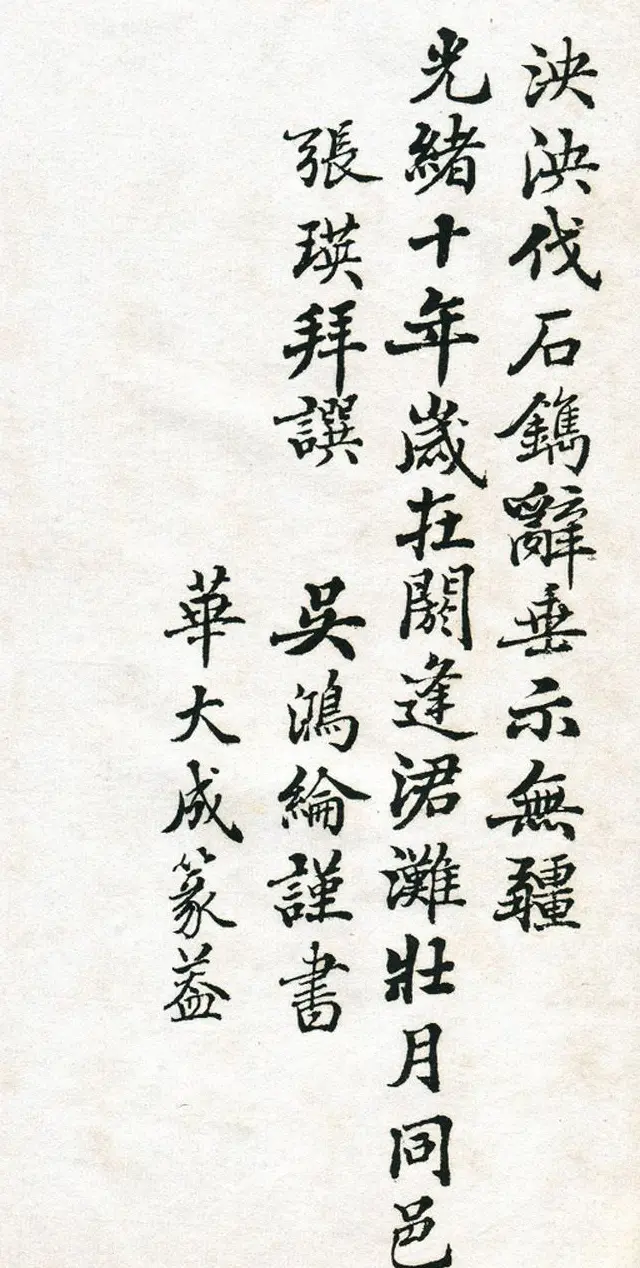 泱泱伐石鐫辭垂示無疆
光緒十年歲在閼逢涒灘壯月同邑
張瑛拜譔
吳鴻綸謹書
華大成篆蓋